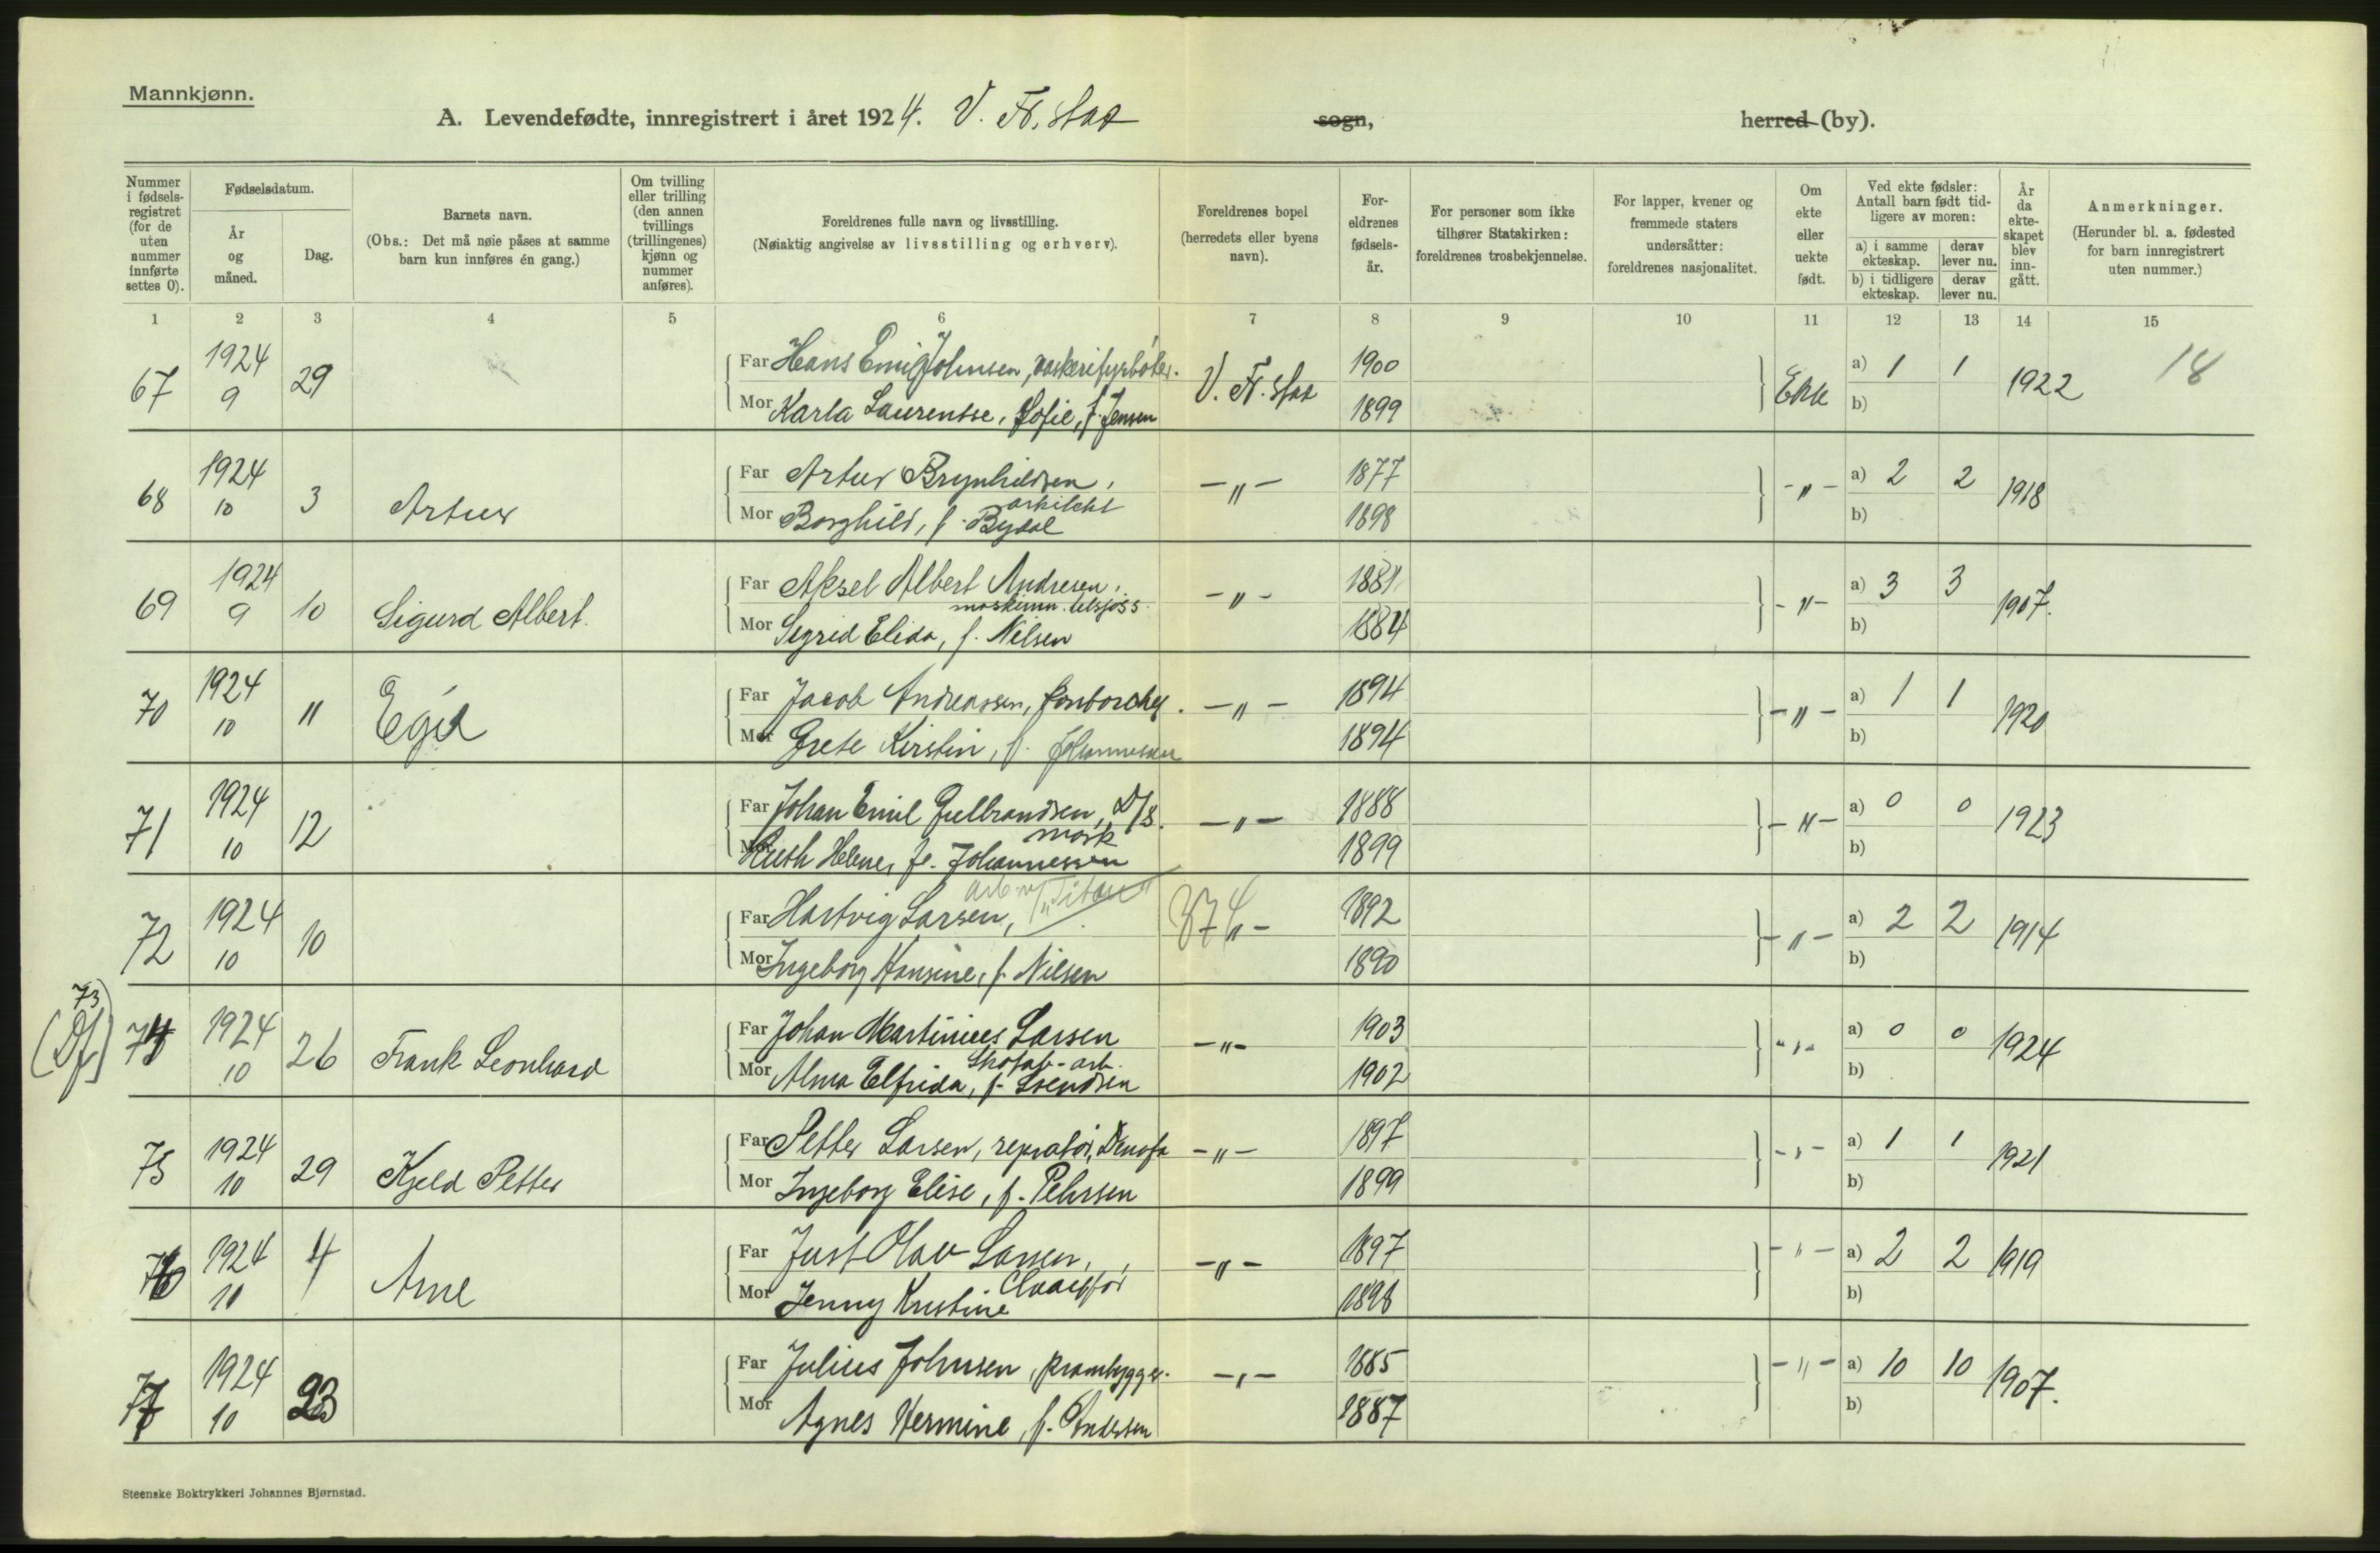 Mannkjønn.
A. Levendefødte, innregistrert i året 1924. V. Fr. stad sogn, herred (by).
Nummer i fødsels-registret (for de uten nummer innførte settes 0).
Fødselsdatum.
År og måned.
Dag.
Barnets navn.
(Obs.: Det må nøie påses at samme barn kun innføres én gang.)
Om tvilling eller trilling (den annen tvillings (trillingenes) kjønn og nummer anføres).
Foreldrenes fulle navn og livsstilling.
(Nøiaktig angivelse av livsstilling og erhverv).
Foreldrenes bopel (herredets eller byens navn).
For-eldrenes fødsels-år.
For personer som ikke tilhører Statskirken: foreldrenes trosbekjennelse.
For lapper, kvener og fremmede staters undersåtter: foreldrenes nasjonalitet.
Om ekte eller uekte født.
Ved ekte fødsler: Antall barn født tid-ligere av moren:
a) i samme ekteskap.
derav lever nu.
b) i tidligere ekteskap.
derav lever nu.
År da ekte-skapet blev inn-gått.
Anmerkninger.
(Herunder bl. a. fødested for barn innregistrert uten nummer.)
1 2 3 4 5 6 7 8 9 10 11 12 13 14 15
67 1924 9 29 Far Hans Emil Johnsen, V. Fr. stad 1900 Ekte a) 1 1 1922 18
Mor Karla Laurentse, Sofie, f. Jensen 1899 b)
68 1924 10 3 Artur Far Artur Brynhildsen, arkitekt -„- 1877 -„- a) 2 2 1918
Mor Borghild, f. Bydal 1898 b)
69 1924 9 10 Sigurd Albert. Far Aksel Albert Andresen, maskinn. -„- 1881 -„- a) 3 3 1907.
Mor Sigrid Elida, f. Nilsen 1884 b)
70 1924 10 11 Egil Far Jacob Andreassen, -„- 1894 -„- a) 1 1 1920
Mor Grete Kirstin, f. Johannesen 1894 b)
71 1924 10 12 Far Johan Emil Gulbrandsen, D/S. mask -„- 1888 -„- a) 0 0 1923
Mor Ruth Helene, f. Johannessen 1899 b)
72 1924 10 10 Far Hartvig Larsen, arb. v/ „Titan" 374 -„- 1892 -„- a) 2 2 1914
Mor Ingeborg Hansine, f. Nilsen 1890 b)
73 (Df) 74 1924 10 26 Frank Leonhard Far Johan Martinius Larsen Skofab-arb. -„- 1903 -„- a) 0 0 1924
Mor Alma Elfrida, f. Svendsen 1902 b)
75 1924 10 29 Kjeld Petter Far Petter Larsen, repratør, Denofa -„- 1897 -„- a) 1 1 1921
Mor Ingeborg Elise, f. Pehrsen 1899 b)
76 1924 10 4 Arne Far Just Olav Larsen, Chauffør -„- 1897 -„- a) 2 2 1919
Mor Jenny Kristine 1898 b)
77 1924 10 23 Far Julius Johnsen, prambygger. -„- 1885 -„- a) 10 10 1907.
Mor Agnes Hermine, f. Andersen 1887 b)
Steenske Boktrykkeri Johannes Bjørnstad.